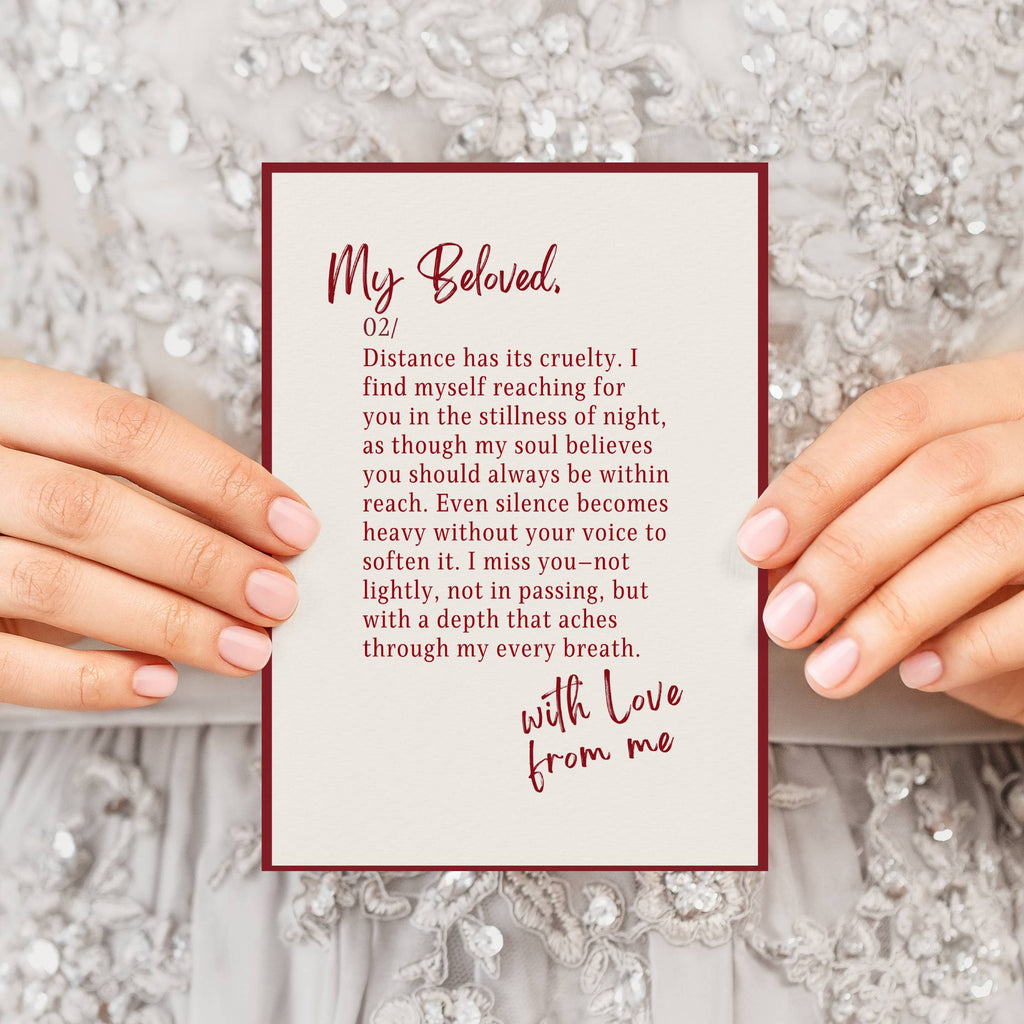 My Beloved,
02/
Distance has its cruelty. I
find myself reaching for
you in the stillness of night,
as though my soul believes
you should always be within
reach. Even silence becomes
heavy without your voice to
soften it. I miss you–not
lightly, not in passing, but
with a depth that aches
through my every breath.
with Love
from me